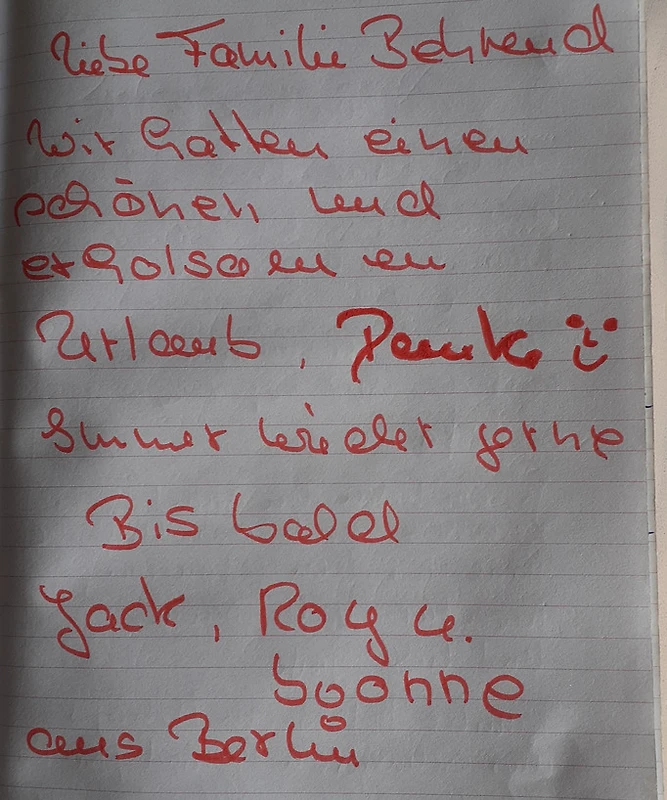 Liebe Familie Behrend
Wir hatten einen
schönen und
erholsamen
Urlaub, Danke
Immer wieder gerne
Bis bald
Jack, Roy u.
aus Berlin